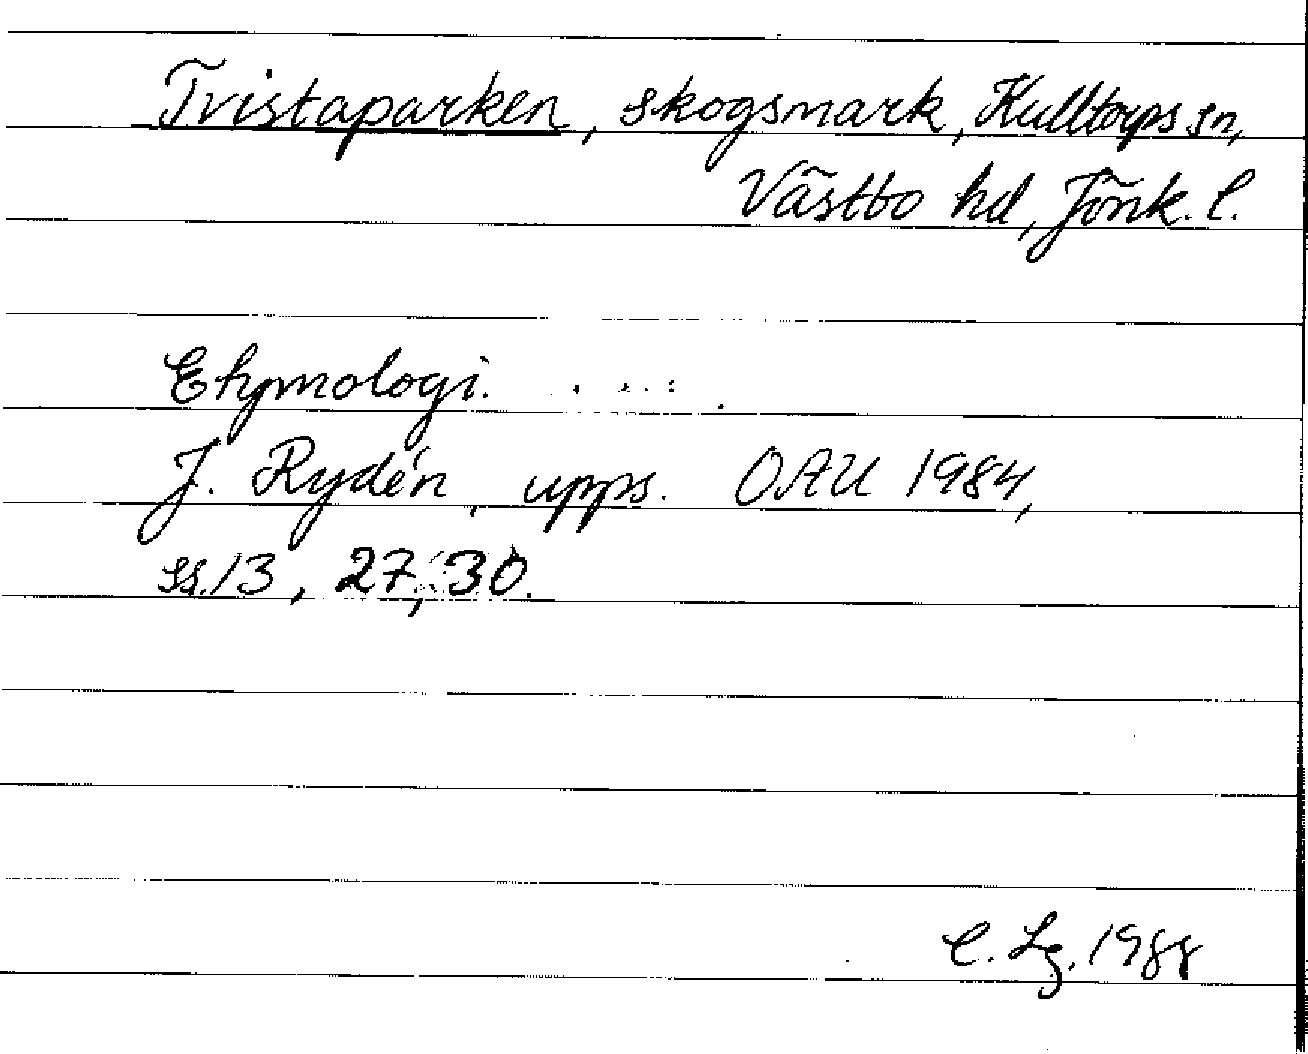 Tvistaparken, skogsmark, Kulltorps sn,
Västbo hd, Jönk. l.
Etymologi.
J. Rydén, upps. OAU 1984,
ss. 13, 27, 30.
C. Lg. 1988